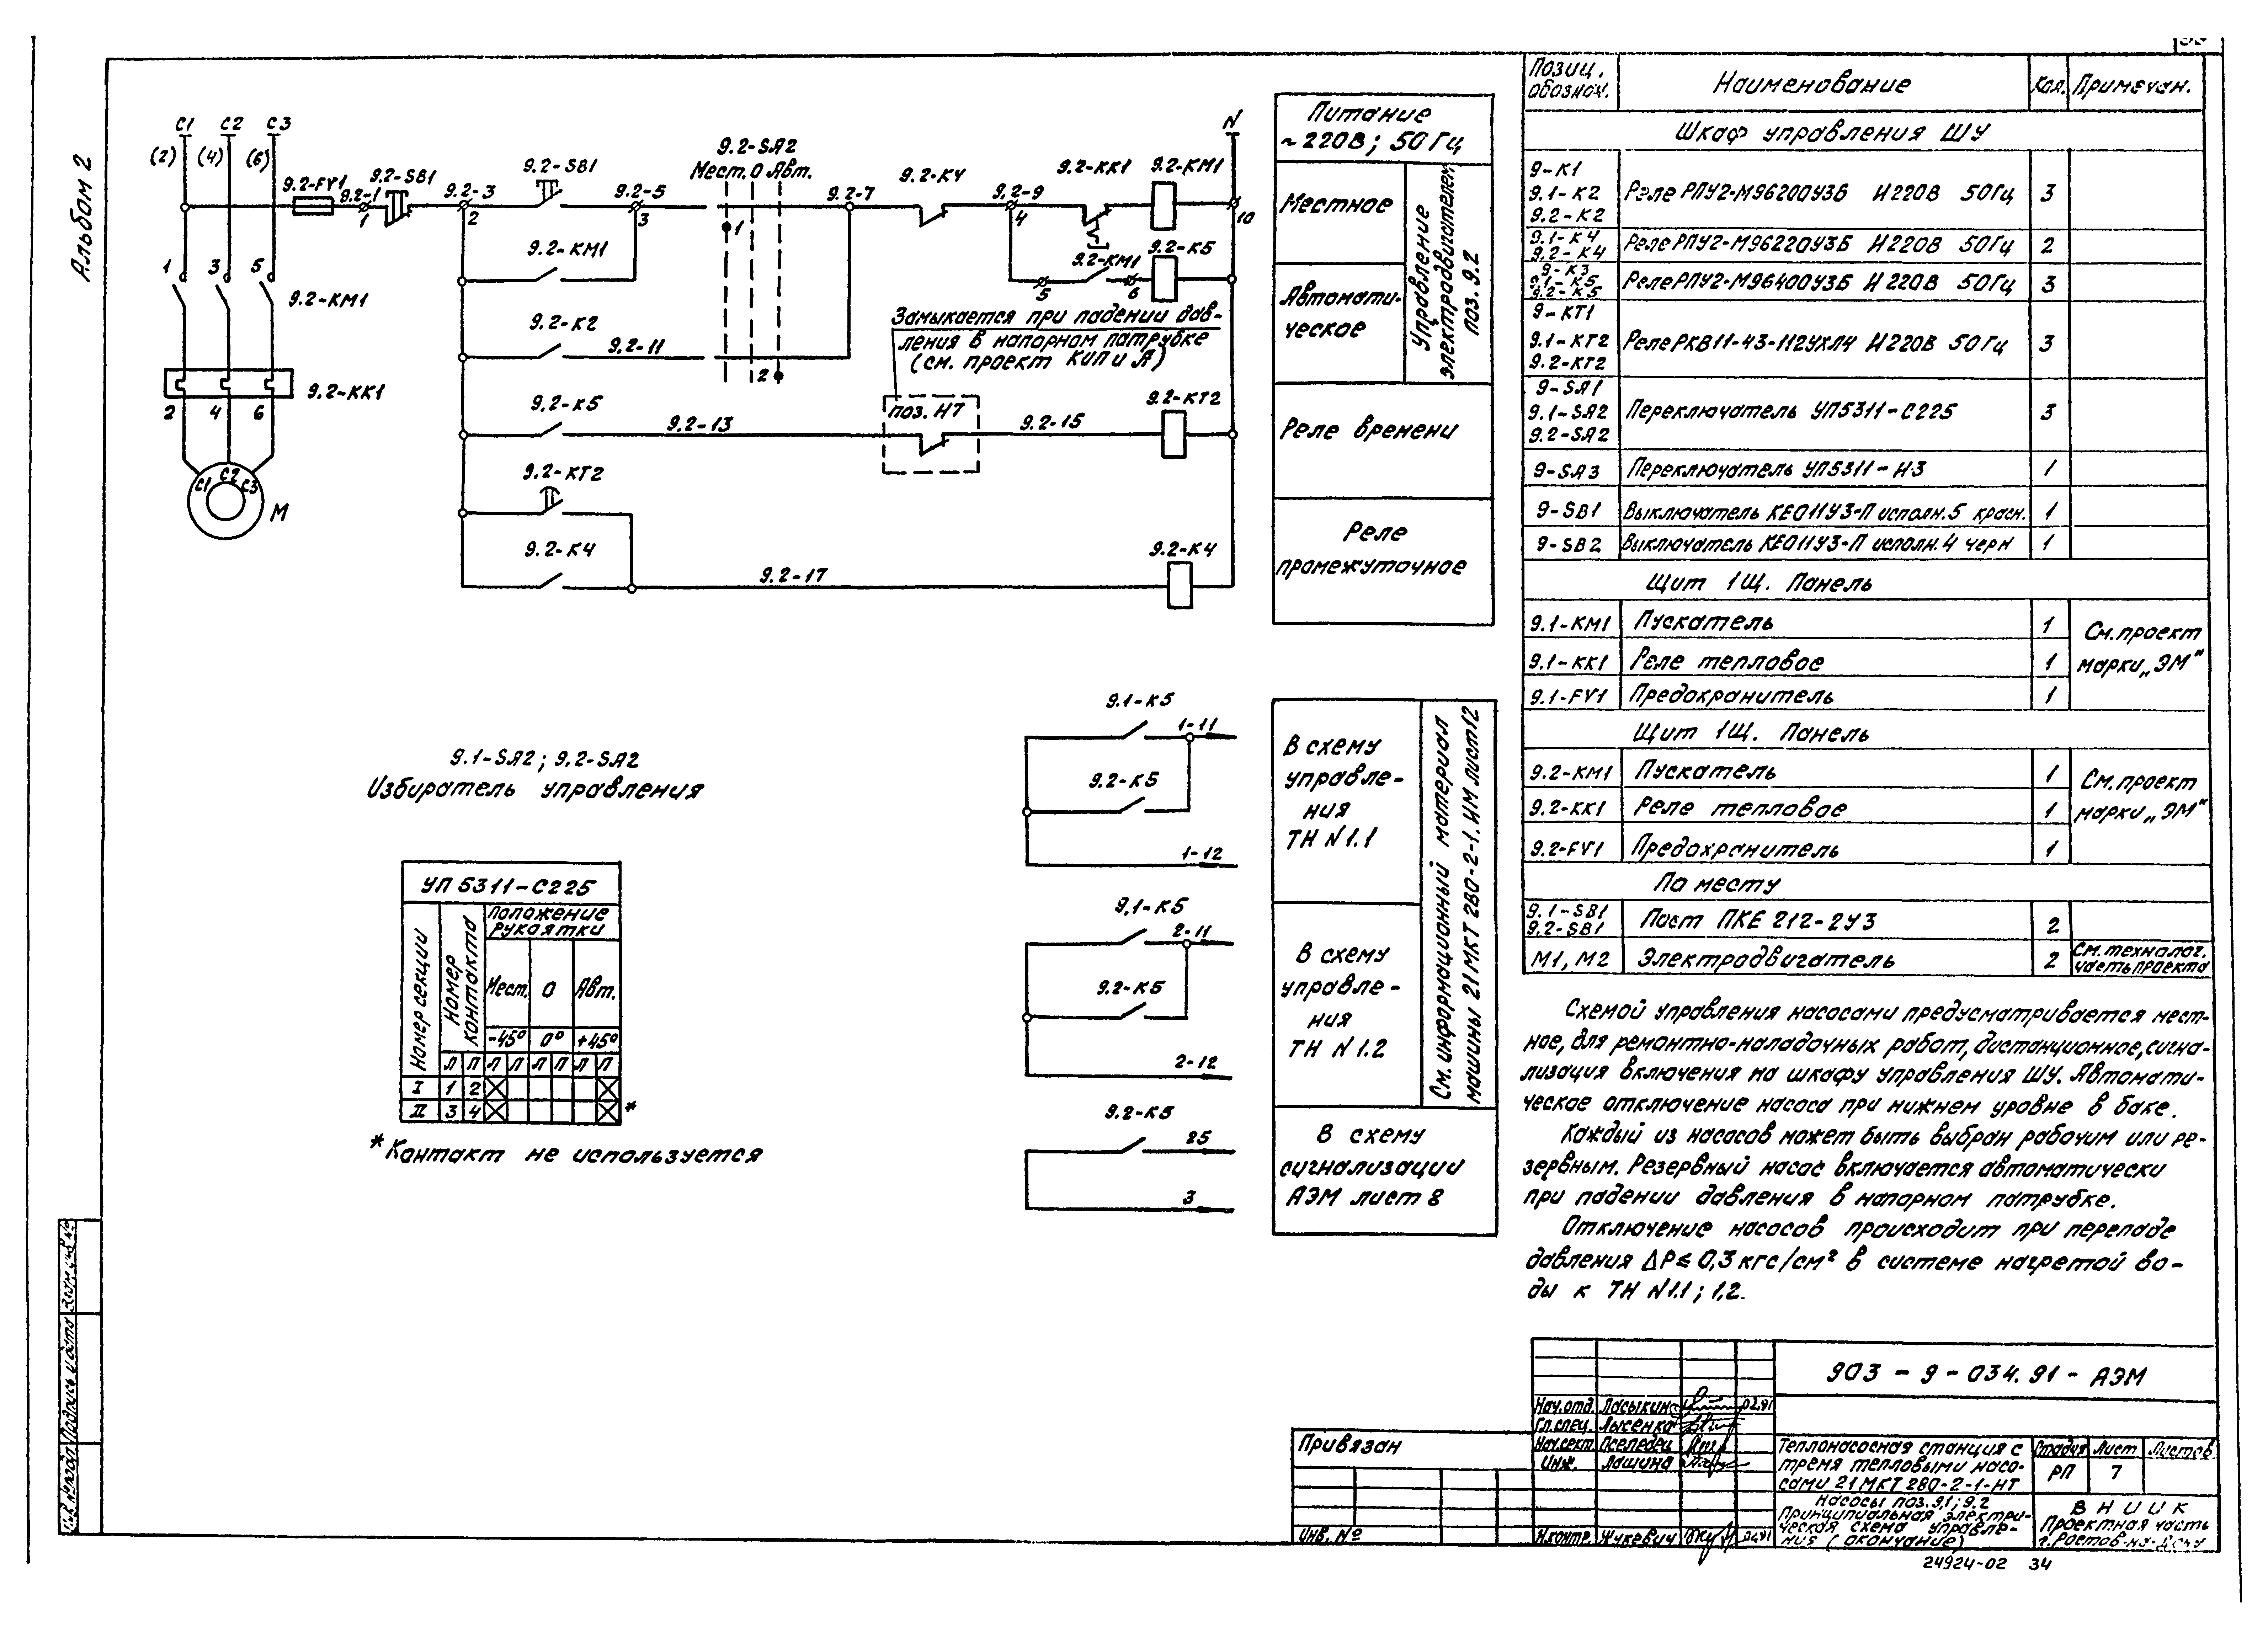 Альбом 2
С1 С2 С3
(2) (4) (6)
9.2-FV1
9.2-1
1
9.2-SB1
9.2-3
2
9.2-SB1
9.2-5
3
9.2-SA2
Мест. 0 Авт.
1
9.2-7
9.2-К4
9.2-9
4
9.2-КК1
9.2-КМ1
N
10
9.2-КМ1
9.2-КМ1
5
6
9.2-К5
1 3 5
9.2-КМ1
9.2-К2
9.2-11
2
Замыкается при падении дав-
ления в напорном патрубке
(см. проект КИП и А)
9.2-КК1
2 4 6
9.2-К5
9.2-13
поз. Н7
9.2-15
9.2-КТ2
С1 С2 С3
М
9.2-КТ2
9.2-К4
9.2-17
9.2-К4
Питание
~220В; 50Гц
Местное
Автомати-
ческое
Управление
электродвигателем
поз. 9.2
Реле времени
Реле
промежуточное
9.1-SA2; 9.2-SA2
Избиратель управления
УП 5311-С225
Номер секции
Номер
контакта
Положение
рукоятки
Мест. 0 Авт.
-45° 0° +45°
Л П Л П Л П Л П
I 1 2
II 3 4 *
* Контакт не используется
9.1-К5
1-11
9.2-К5
1-12
9.1-К5
2-11
9.2-К5
2-12
9.2-К5
25
3
В схему
управле-
ния
ТН N1.1
В схему
управле-
ния
ТН N1.2
См. информационный материал
машины 21МКТ 280-2-1. ИМ лист 12
В схему
сигнализации
АЭМ лист 8
Позиц.
обознач. Наименование Кол. Примечан.
Шкаф управления ШУ
9-К1
9.1-К2 Реле РПУ2-М96200У3Б И 220В 50Гц 3
9.2-К2
9.1-К4
9.2-К4 Реле РПУ2-М96220У3Б И 220В 50Гц 2
9-К3
9.1-К5 Реле РПУ2-М96400У3Б И 220В 50Гц 3
9.2-К5
9-КТ1
9.1-КТ2 Реле РКВ11-43-112УХЛ4 И 220В 50Гц 3
9.2-КТ2
9-SA1
9.1-SA2 Переключатель УП5311-С225 3
9.2-SA2
9-SA3 Переключатель УП5311-И3 1
9-SB1 Выключатель КЕ011У3-П исполн. 5 красн. 1
9-SB2 Выключатель КЕ011У3-П исполн. 4 черн 1
Щит 1Щ. Панель
9.1-КМ1 Пускатель 1 См. проект
9.1-КК1 Реле тепловое 1 марки „ЭМ"
9.1-FV1 Предохранитель 1
Щит 1Щ. Панель
9.2-КМ1 Пускатель 1 См. проект
9.2-КК1 Реле тепловое 1 марки „ЭМ"
9.2-FV1 Предохранитель 1
По месту
9.1-SB1
9.2-SB1 Пост ПКЕ 212-2У3 2
М1, М2 Электродвигатель 2 См. технолог.
часть проекта
Схемой управления насосами предусматривается мест-
ное, для ремонтно-наладочных работ, дистанционное, сигна-
лизация включения на шкафу управления ШУ. Автомати-
ческое отключение насоса при нижнем уровне в баке.
Каждый из насосов может быть выбран рабочим или ре-
зервным. Резервный насос включается автоматически
при падении давления в напорном патрубке.
Отключение насосов происходит при перепаде
давления ΔР≤ 0,3 кгс/см² в системе нагретой во-
ды к ТН N1.1; 1,2.
903 - 9 - 034.91 - АЭМ
Нач. отд. Ласыкин 02.91
Гл. спец. Лысенко
Нач. сект. Пселедец
Инж. Лашина
Н.контр. Жукевич 02.91
Привязан
Инв. №
Теплонасосная станция с
тремя тепловыми насо-
сами 21МКТ 280-2-1-НТ
Стадия Лист Листов
РП 7
Насосы поз. 9.1; 9.2
Принципиальная электри-
ческая схема управле-
ния (окончание)
ВНИИК
Проектная часть
г. Ростов-на-Дону
24924-02 34
Инв. № подл. Подпись и дата Взам. инв. №